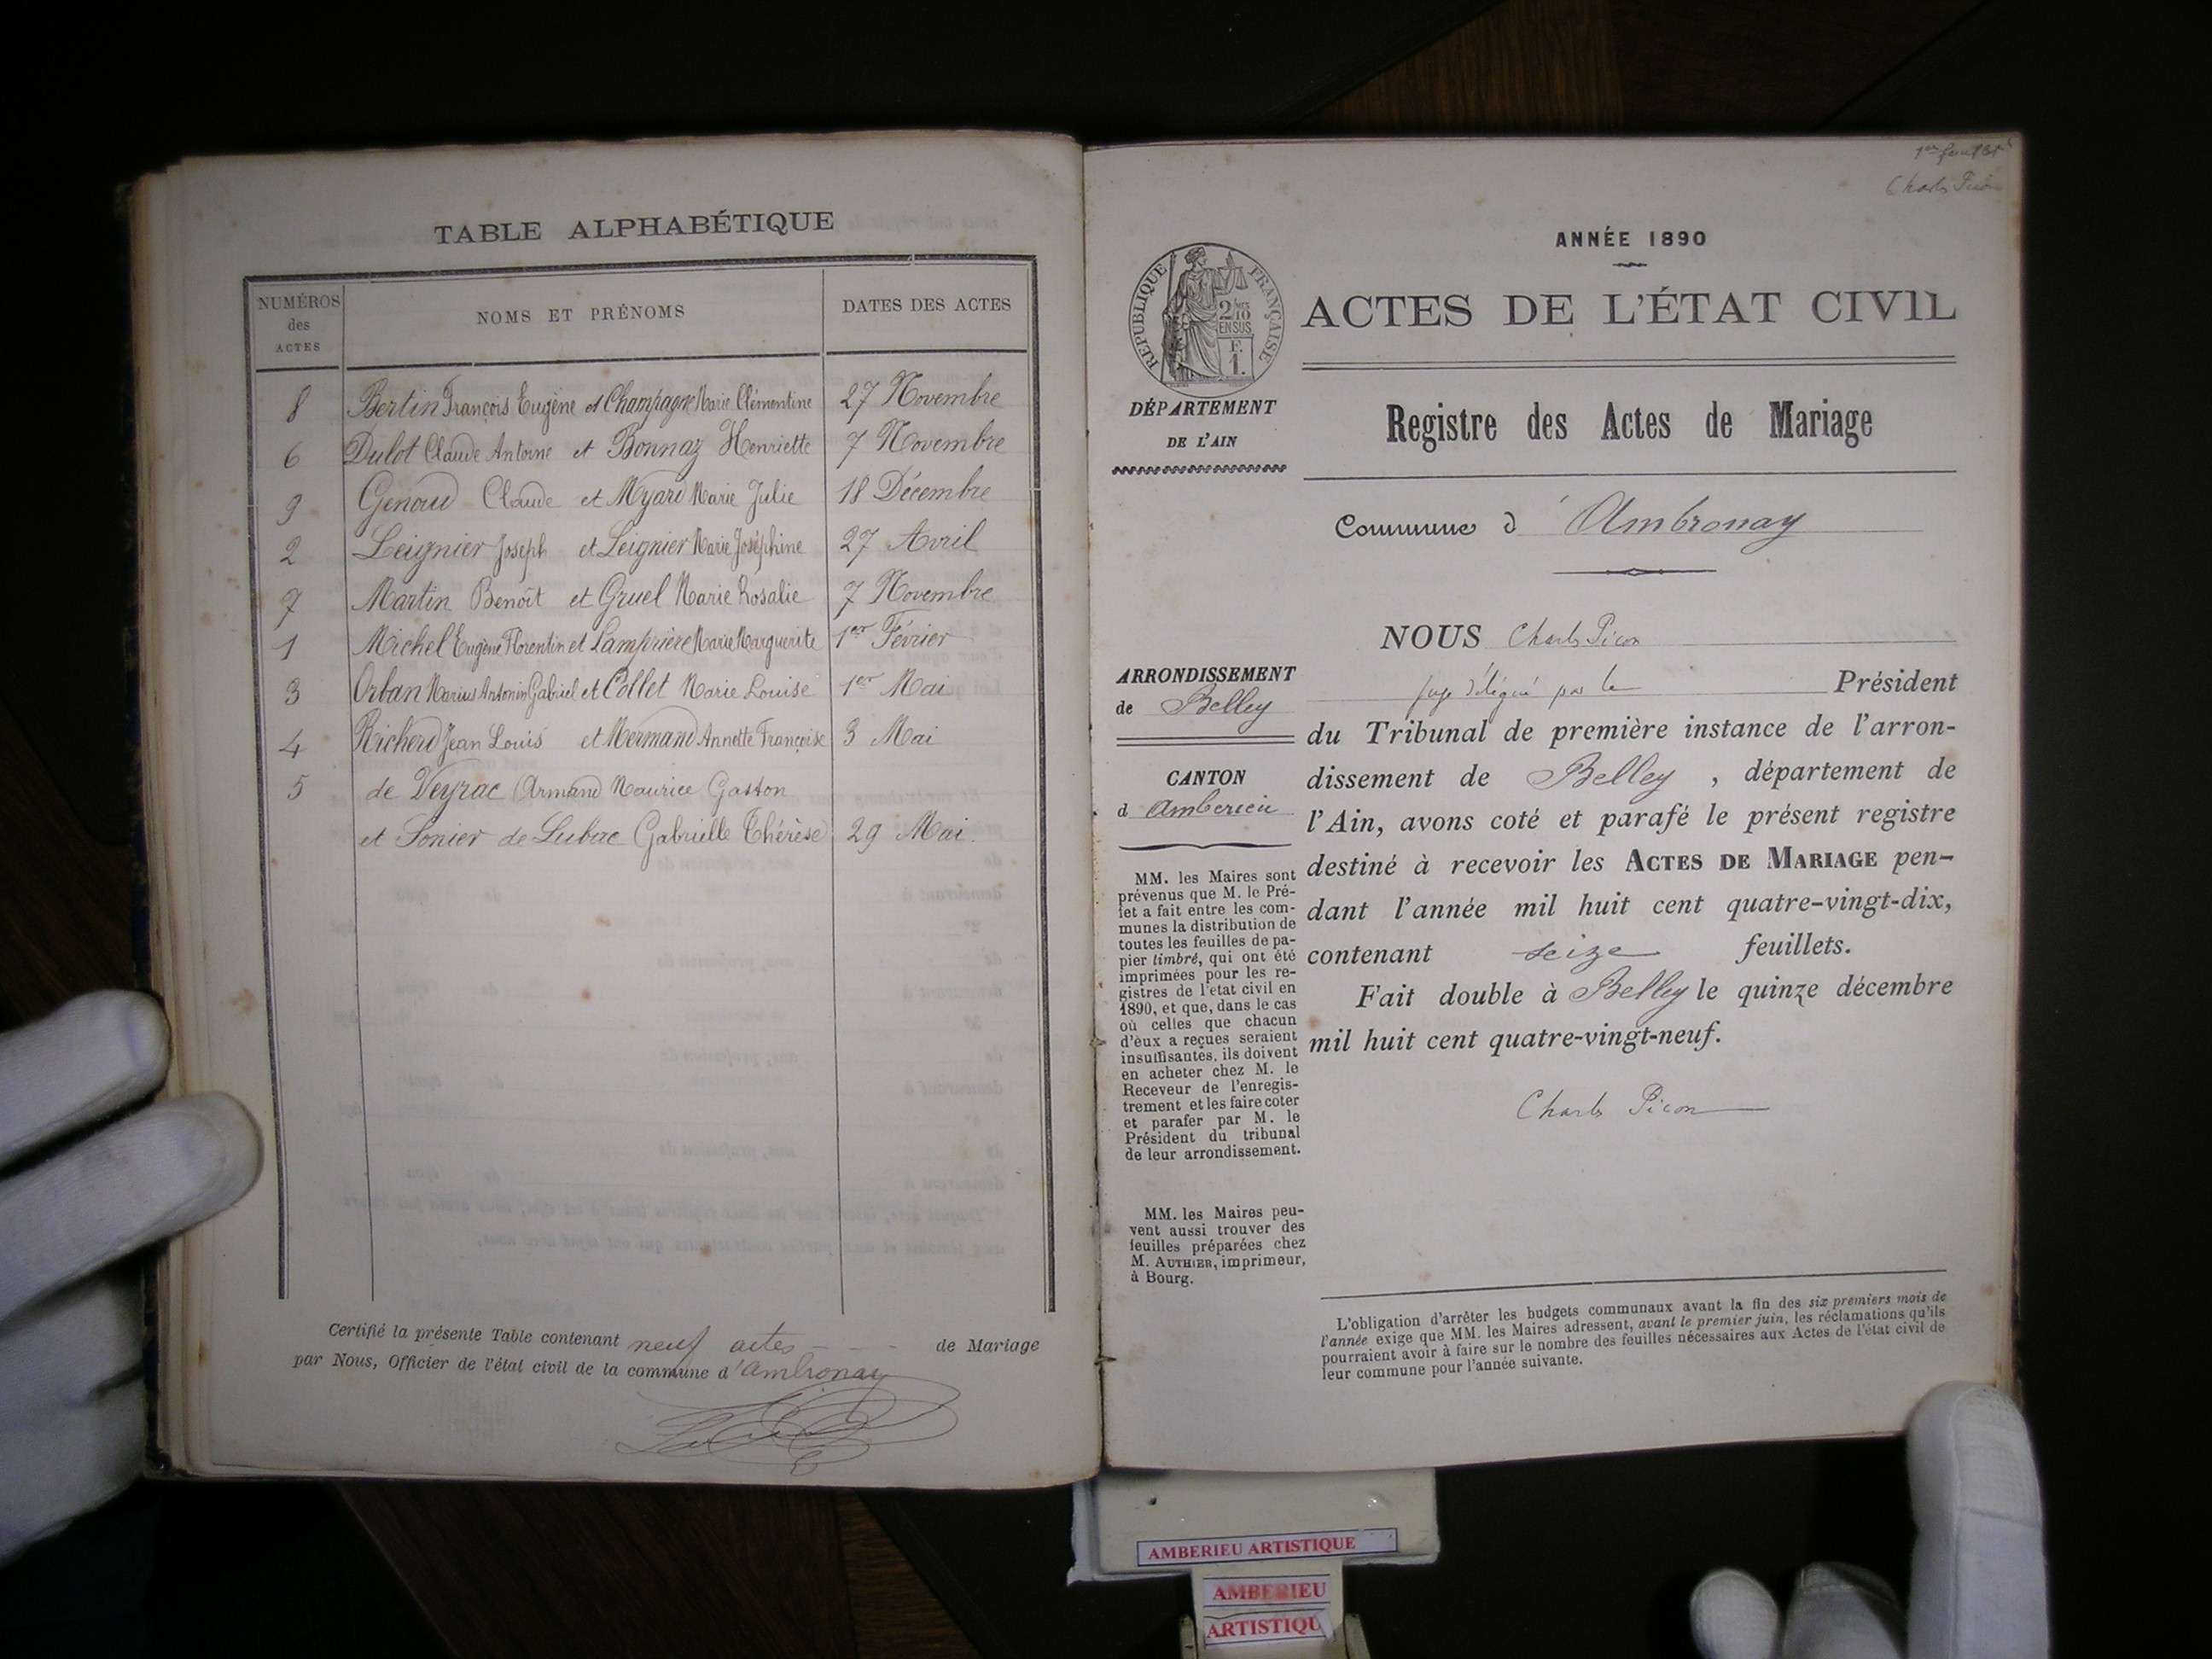 TABLE ALPHABÉTIQUE
NUMÉROS des ACTES NOMS ET PRÉNOMS DATES DES ACTES
8 Bertin François Eugène et Champagne Marie Clémentine 27 Novembre
6 Dulot Claude Antoine et Bonnaz Henriette 7 Novembre
9 Genoud Claude et Myard Marie Julie 18 Décembre
2 Leignier Joseph et Leignier Marie Joséphine 27 Avril
7 Martin Benoît et Gruel Marie Rosalie 7 Novembre
1 Michel Eugène Florentin et Lamprière Marie Marguerite 1er Février
3 Orban Marius Antonin Gabriel et Collet Marie Louise 1er Mai
4 Richerd Jean Louis et Mermand Annette Françoise 3 Mai
5 de Veyrac Armand Maurice Gaston
et Sonier de Lubac Gabrielle Thérèse 29 Mai.
Certifié la présente Table contenant neuf actes de Mariage
par Nous, Officier de l'état civil de la commune d'Ambronay
1er feuillet
Charles Picon
ANNÉE 1890
RÉPUBLIQUE FRANÇAISE
2/10
EN SUS
F.
1.
ACTES DE L'ÉTAT CIVIL
DÉPARTEMENT
DE L'AIN
Registre des Actes de Mariage
Commune d'Ambronay
ARRONDISSEMENT
de Belley
CANTON
d Amberieu
MM. les Maires sont
prévenus que M. le Pré-
fet a fait entre les com-
munes la distribution de
toutes les feuilles de pa-
pier timbré, qui ont été
imprimées pour les re-
gistres de l'état civil en
1890, et que, dans le cas
où celles que chacun
d'eux a reçues seraient
insuffisantes, ils doivent
en acheter chez M. le
Receveur de l'enregis-
trement et les faire coter
et parafer par M. le
Président du tribunal
de leur arrondissement.
MM. les Maires peu-
vent aussi trouver des
feuilles préparées chez
M. AUTHIER, imprimeur,
à Bourg.
NOUS Charles Picon
juge délégué par le Président
du Tribunal de première instance de l'arron-
dissement de Belley, département de
l'Ain, avons coté et parafé le présent registre
destiné à recevoir les ACTES DE MARIAGE pen-
dant l'année mil huit cent quatre-vingt-dix,
contenant seize feuillets.
Fait double à Belley le quinze décembre
mil huit cent quatre-vingt-neuf.
Charles Picon
L'obligation d'arrêter les budgets communaux avant la fin des six premiers mois de
l'année exige que MM. les Maires adressent, avant le premier juin, les réclamations qu'ils
pourraient avoir à faire sur le nombre des feuilles nécessaires aux Actes de l'état civil de
leur commune pour l'année suivante.
AMBERIEU ARTISTIQUE
AMBERIEU
ARTISTIQU